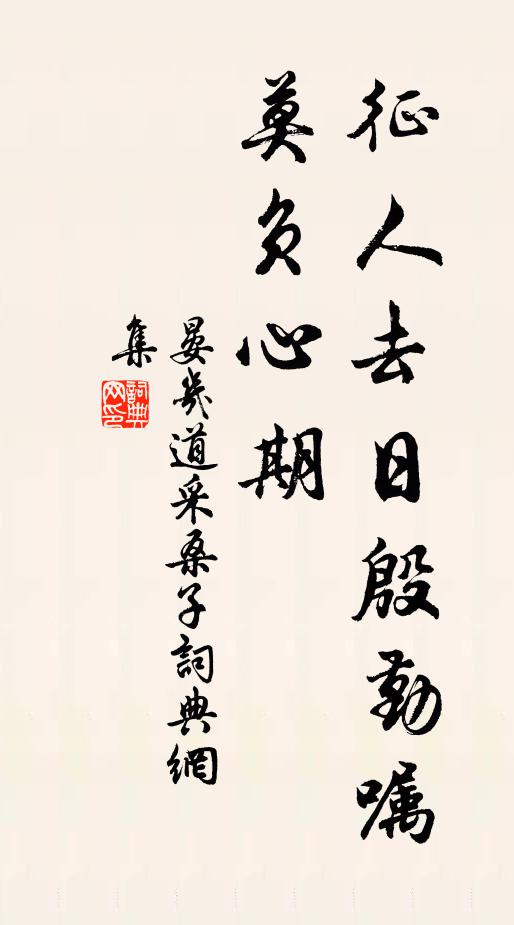 征人去日殷勤嘱
莫负心期
晏幾道采桑子詞典網
集
詞典网印